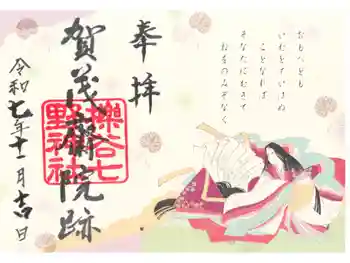 おもへども
いむとていはぬ
ことなれば
そなたにむきて
ねをのみぞなく
奉拝
賀茂齋院跡
櫟谷七
野神社
令和七年十一月吉日